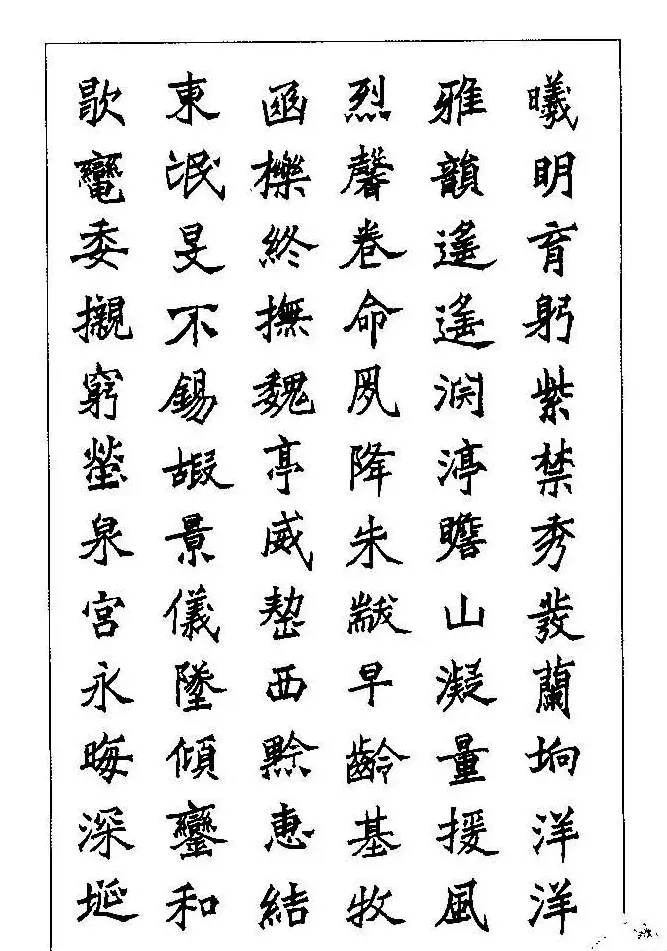 曦明育躬紫禁秀發蘭坰洋洋
雅韻遙遙淵渟瞻山凝量援風
烈馨卷命夙降朱黻早齡基牧
函櫟終撫魏亭威西黔惠結
東氓旻不錫嘏景儀墜傾鑾和
歇委櫬窮塋泉宮永晦深埏